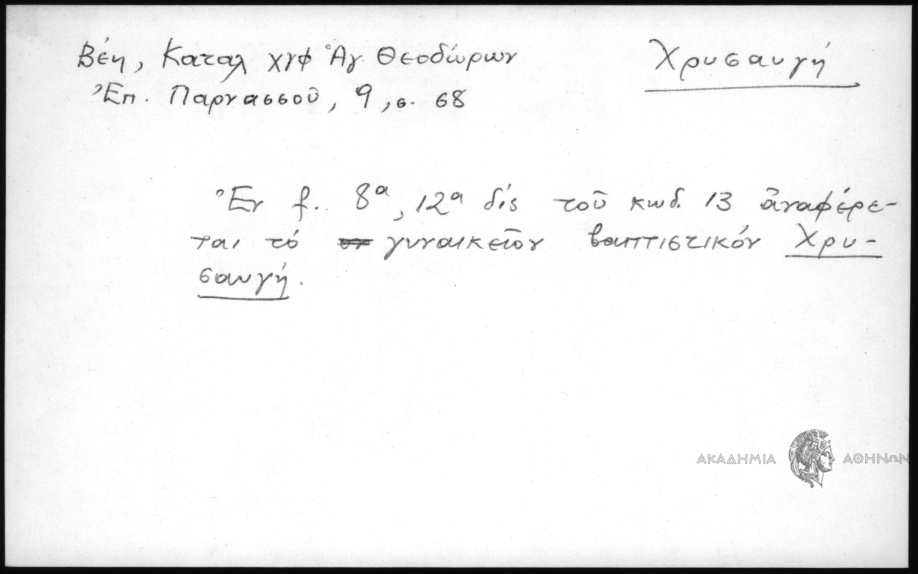 Βέη, Καταλ χγφ Ἁγ. Θεοδώρων
Χρυσαυγή
Ἐπ. Παρνασσοῦ, 9, σ. 68
Ἐν f. 8α, 12α δίς τοῦ κωδ. 13 ἀναφέρε-
ται τό γυναικεῖον βαπτιστικόν Χρυ-
σαυγή.
ΑΚΑΔΗΜΙΑ ΑΘΗΝΩΝ